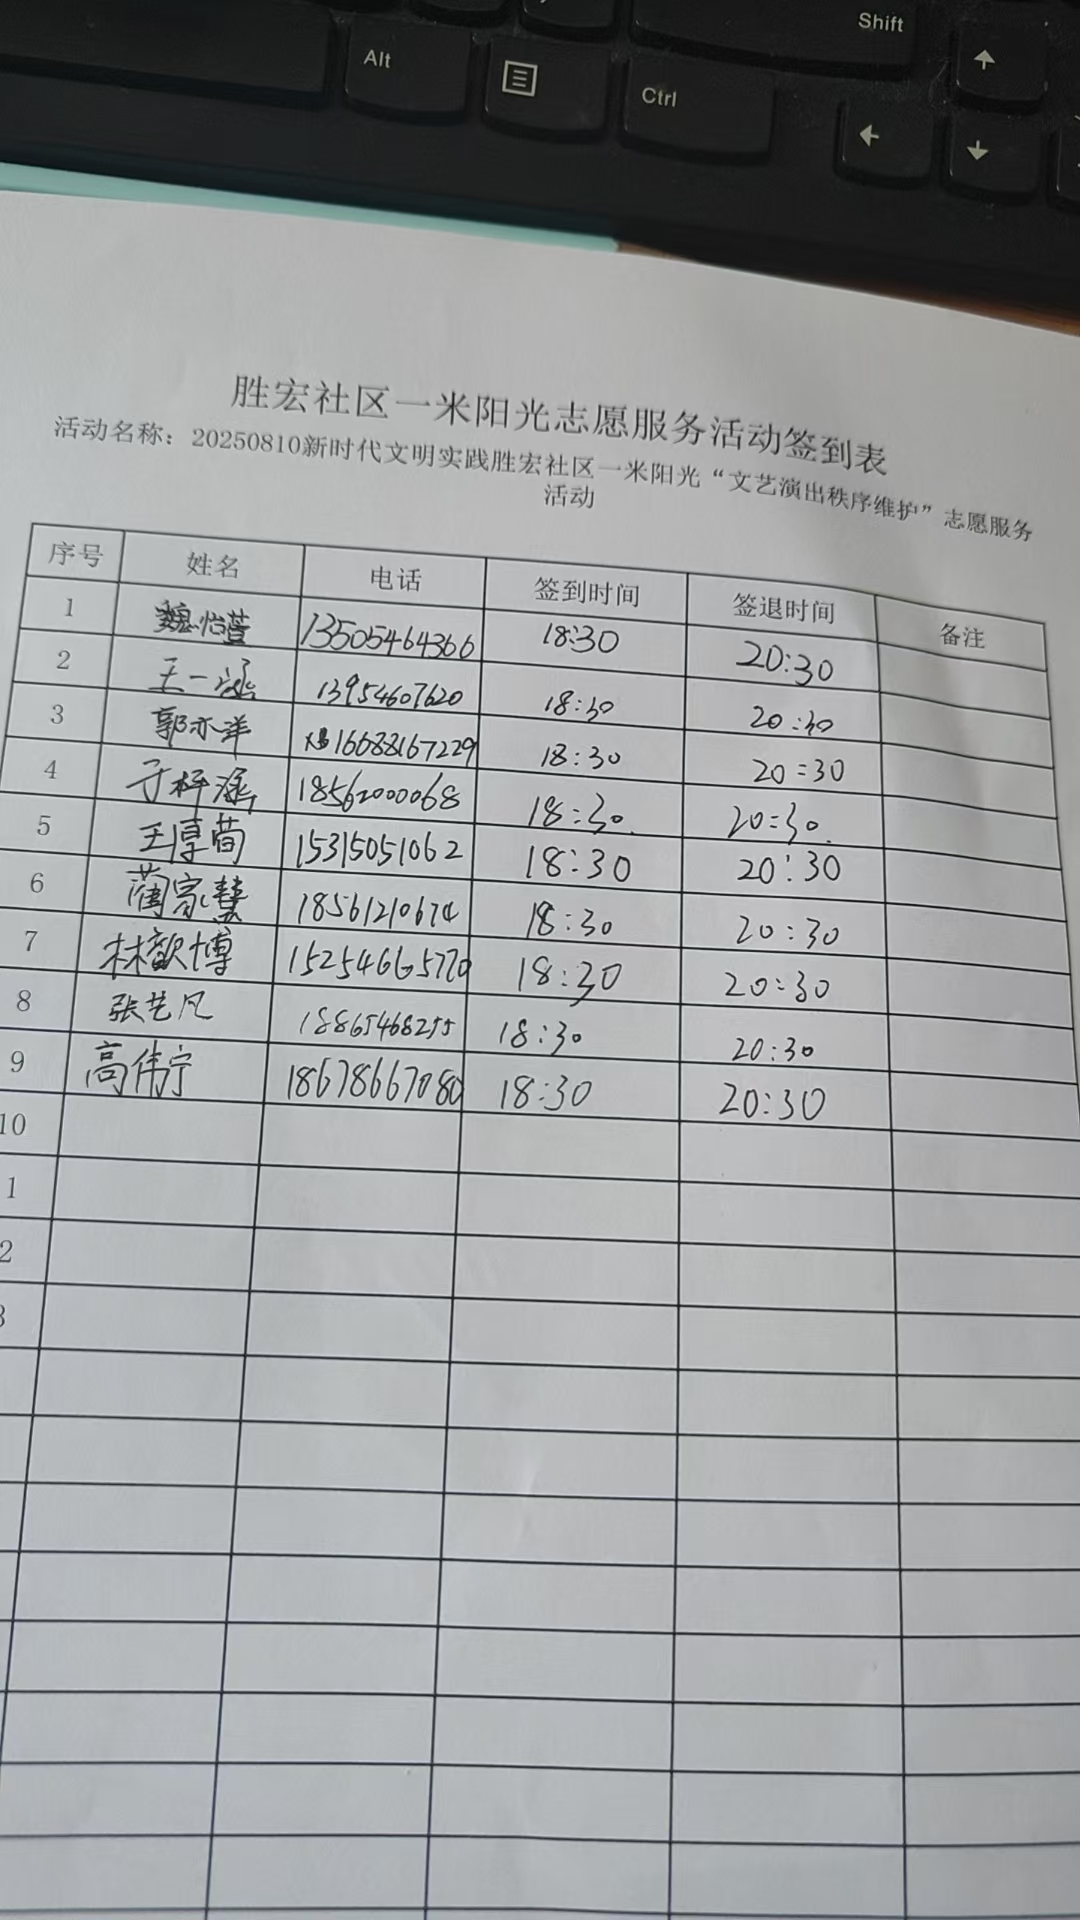 Shift
Alt
Ctrl
胜宏社区一米阳光志愿服务活动签到表
活动名称：20250810新时代文明实践胜宏社区一米阳光“文艺演出秩序维护”志愿服务
活动
序号 姓名 电话 签到时间 签退时间 备注
1 魏怡萱 13505464366 18:30 20:30
2 王一涵 13954607620 18:30 20:30
3 郭亦洋 16688167229 18:30 20:30
4 于梓涵 18562000068 18:30 20:30
5 王厚荀 15315051062 18:30 20:30
6 蔺家慧 18561210674 18:30 20:30
7 林歆博 15254665770 18:30 20:30
8 张艺凡 18865468255 18:30 20:30
9 高伟宁 18678667080 18:30 20:30
10
1
2
3